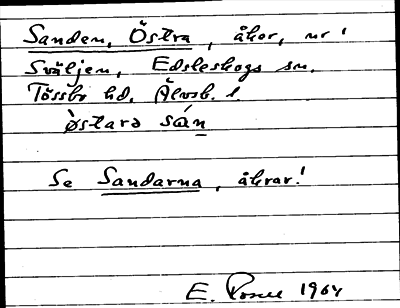 Sanden, Östra, åker, nr 1
Sväljen, Edsleskogs sn.
Tössbo hd. Älvsb. l.
östarə sán
Se Sandarna, åkrar!
E. Rosell 1964